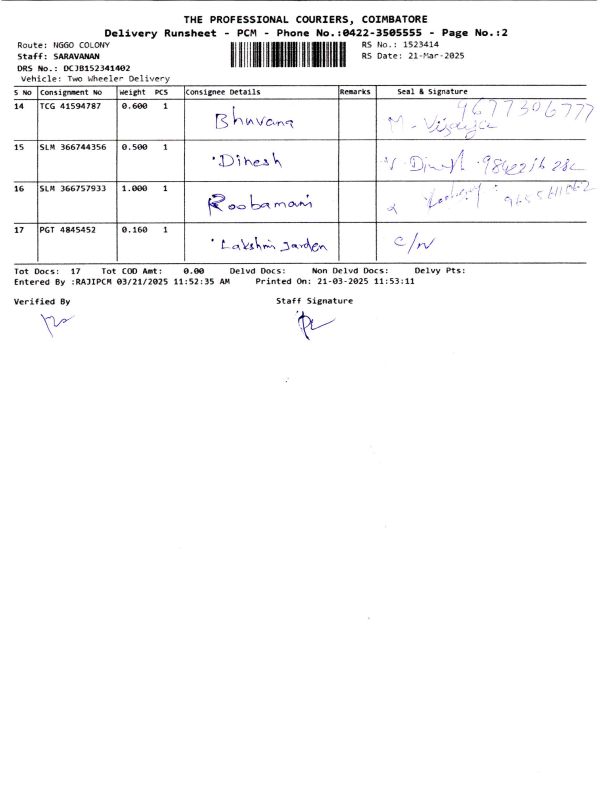 THE PROFESSIONAL COURIERS, COIMBATORE
Delivery Runsheet - PCM - Phone No.:0422-3505555 - Page No.:2
Route: NGGO COLONY
RS No.: 1523414
Staff: SARAVANAN
RS Date: 21-Mar-2025
DRS No.: DCJB152341402
Vehicle: Two Wheeler Delivery
S No Consignment No Weight PCS Consignee Details Remarks Seal & Signature
14 TCG 41594787 0.600 1 Bhuvana 9677306777
M-
15 SLM 366744356 0.500 1 Dinesh
16 SLM 366757933 1.000 1 Roobamani
17 PGT 4845452 0.160 1 Lakshmi Jarden C/N
Tot Docs: 17 Tot COD Amt: 0.00 Delvd Docs: Non Delvd Docs: Delvy Pts:
Entered By :RAJIPCM 03/21/2025 11:52:35 AM Printed On: 21-03-2025 11:53:11
Verified By Staff Signature